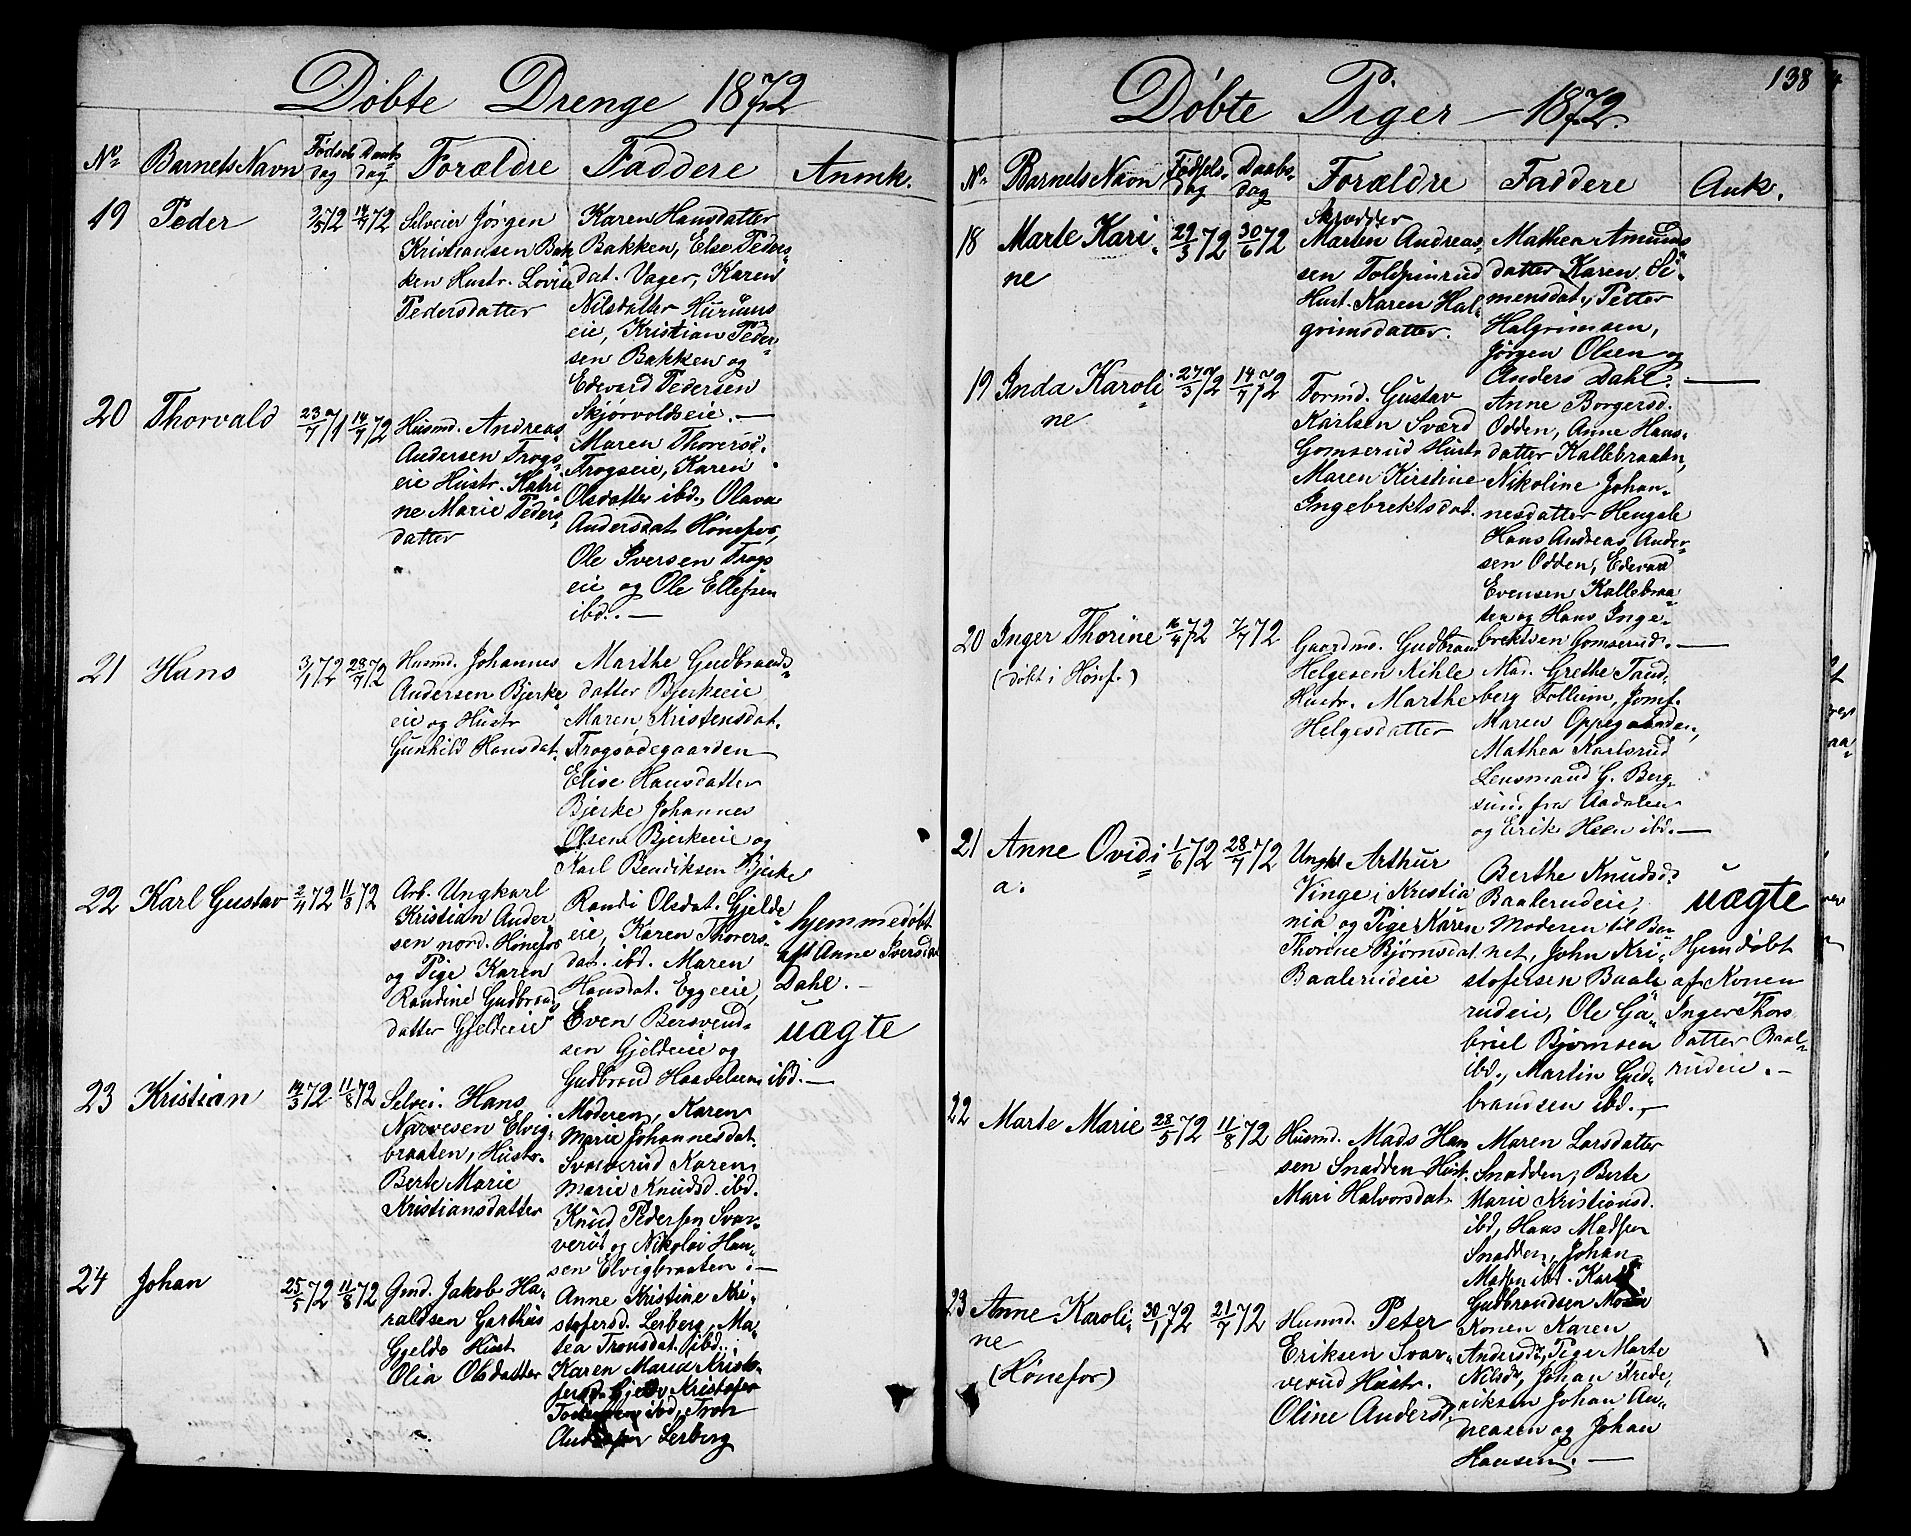 Döbte Drenge 1872
No. Barnets Navn Fødsels dag Daabs dag Forældre Faddere Anmk.
19 Peder 2/5 72 14/7 72
Selveier Jörgen
Kristiansen Bak
ken Hustr. Lovise
Pedersdatter
Karen Hansdatter
Bakken, Else Peders-
dat. Vager, Karen
Nilsdatter Hurums
eie, Kristian Peder-
sen Bakken og
Edevard Pedersen
Skjörvoldseie. —
20 Thorvald 23/7 71 14/7 72
Husmd. Andreas
Andersen Frogs-
eie Hustr. Katri
ne Marie Peders-
datter
Maren Thorersd.
Frogseie, Karen
Olsdatter ibd., Olava
Andersdat. Hönefos,
Ole Iversen Frogs
eie og Ole Ellefsen
ibd. —
21 Hans 3/1 72 28/7 72
Husmd. Johannes
Andersen Bjerke
eie og Hustr.
Gunhild Hansdat.
Marthe Gudbrands-
datter Bjerkeeie
Maren Kristensdat.
Frogsödegaarden
Elise Hansdatter
Bjerke Johannes
Olsen Bjerkeeie og
Karl Bendiksen Bjerke
22 Karl Gustav 2/4 72 11/8 72
Arb. Ungkarl
Kristian Ander
sen nord. Hönefos
og Pige Karen
Randine Gudbrands
datter Gjeldeeie
Randi Olsdat. Gjelde
eie, Karen Thorers-
dat. ibd. Maren
Hansdat. Eggeeie,
Even Bersvend-
sen Gjeldeeie og
Gudbrand Haavelsen ibd. —
hjemmedöbt
aff Anne Iversdat
Dahl. —
uægte
23 Kristian 14/3 72 11/8 72
Selvei. Hans
Narvesen Elvig-
braaten, Hustr.
Berte Marie
Kristiansdatter
Moderen, Karen
Marie Johannesdat.
Svarverud Karen
Marie Knudsd. ibd.
Knud Pedersen Svar-
verud og Nikolai Han-
sen Elvigbraaten. —
24 Johan 25/5 72 11/8 72
Gmd. Jakob Ha-
raldsen Garthus
Gjelde Hust
Olia Olsdatter
Anne Kristine Kri-
stofersd. Lerberg, Ma-
tea Tronsdat. ibd.
Karen Maria Kristo-
fersd. Kristofer
ibd, Tron
Lerberg
138
Döbte Piger 1872.
No. Barnets Navn Fødsels- dag Daabs- dag Forældre Faddere Ank.
18 Marte Kari
ne 29/3 72 30/6 72
Skrædder
Martin Andreas-
sen Toldpinrud
Hust. Karen Hal-
grimsdatter.
Mathea Amunds
datter Karen Si-
mensdat, Petter
Halgrimsen,
Jörgen Olsen og
Anders Dahl. —
19 Inda Karoli
ne 27/3 72 14/7 72
Formd. Gustav
Karlsen Sværd
Gomserud Hustr
Maren Kirstine
Ingebrektsdat.
Anne Borgersd.
Odden, Anne Hans-
datter Kallebraatn,
Nikoline Johan-
nesdatter Hengsle
Hans Andreas Ander-
sen Odden, Edevard
Evensen Kallebraa-
ten og Hans Inge-
brektsen Gomserud. —
20 Inger Thorine 16/4 72 7/7 72
(döbt i Hönef.)
Gaardmd. Gudbran
Helgesen Kihle
Hustr. Marthe
Helgesdatter
Mad. Grethe Tand-
berg Follum, Jomf.
Maren Oppegaarden,
Mathea Karlsrud
Lensmand G. Berg-
sund fra Aadalen
og Erik Heen ibd. —
21 Anne Ovidi
a. 1/6 72 28/7 72
Ungkl Arthur
Vinge i Kristia
nia og Pige Karen
Thorine Björnsdat
Baalerudeie
Berthe Knudsd.
Baalerudeie,
Moderen til Bar
net, John Kri-
stofersen Baale
rudeie, Ole Ga-
briel Björnsen
ibd., Martin Gud-
brandsen ibd., —
uægte
Hjemdöbt
af Konen
Inger Thors
datter Baal-
rudeie. —
22 Marte Marie 28/5 72 11/8 72
Husmd. Mads Han
sen Snadden Hust.
Mari Halvorsdat.
Maren Larsdatter
Snadden, Berte
Marie Kristiansd.
ibd, Hans Madsen
Snadden, Johan
Madsen ibd.
Gudbrandsen Moen
23 Anne Karoli-
ne
(Hönefos) 30/1 72 21/7 72
Husmd. Peter
Eriksen Svar-
verud Hustr.
Oline Andersd.
Konen Karen
Andersd, Pige Marte
Nilsd, Johan Frede-
riksen Johan An-
dreasen og Johan
Hansen. —